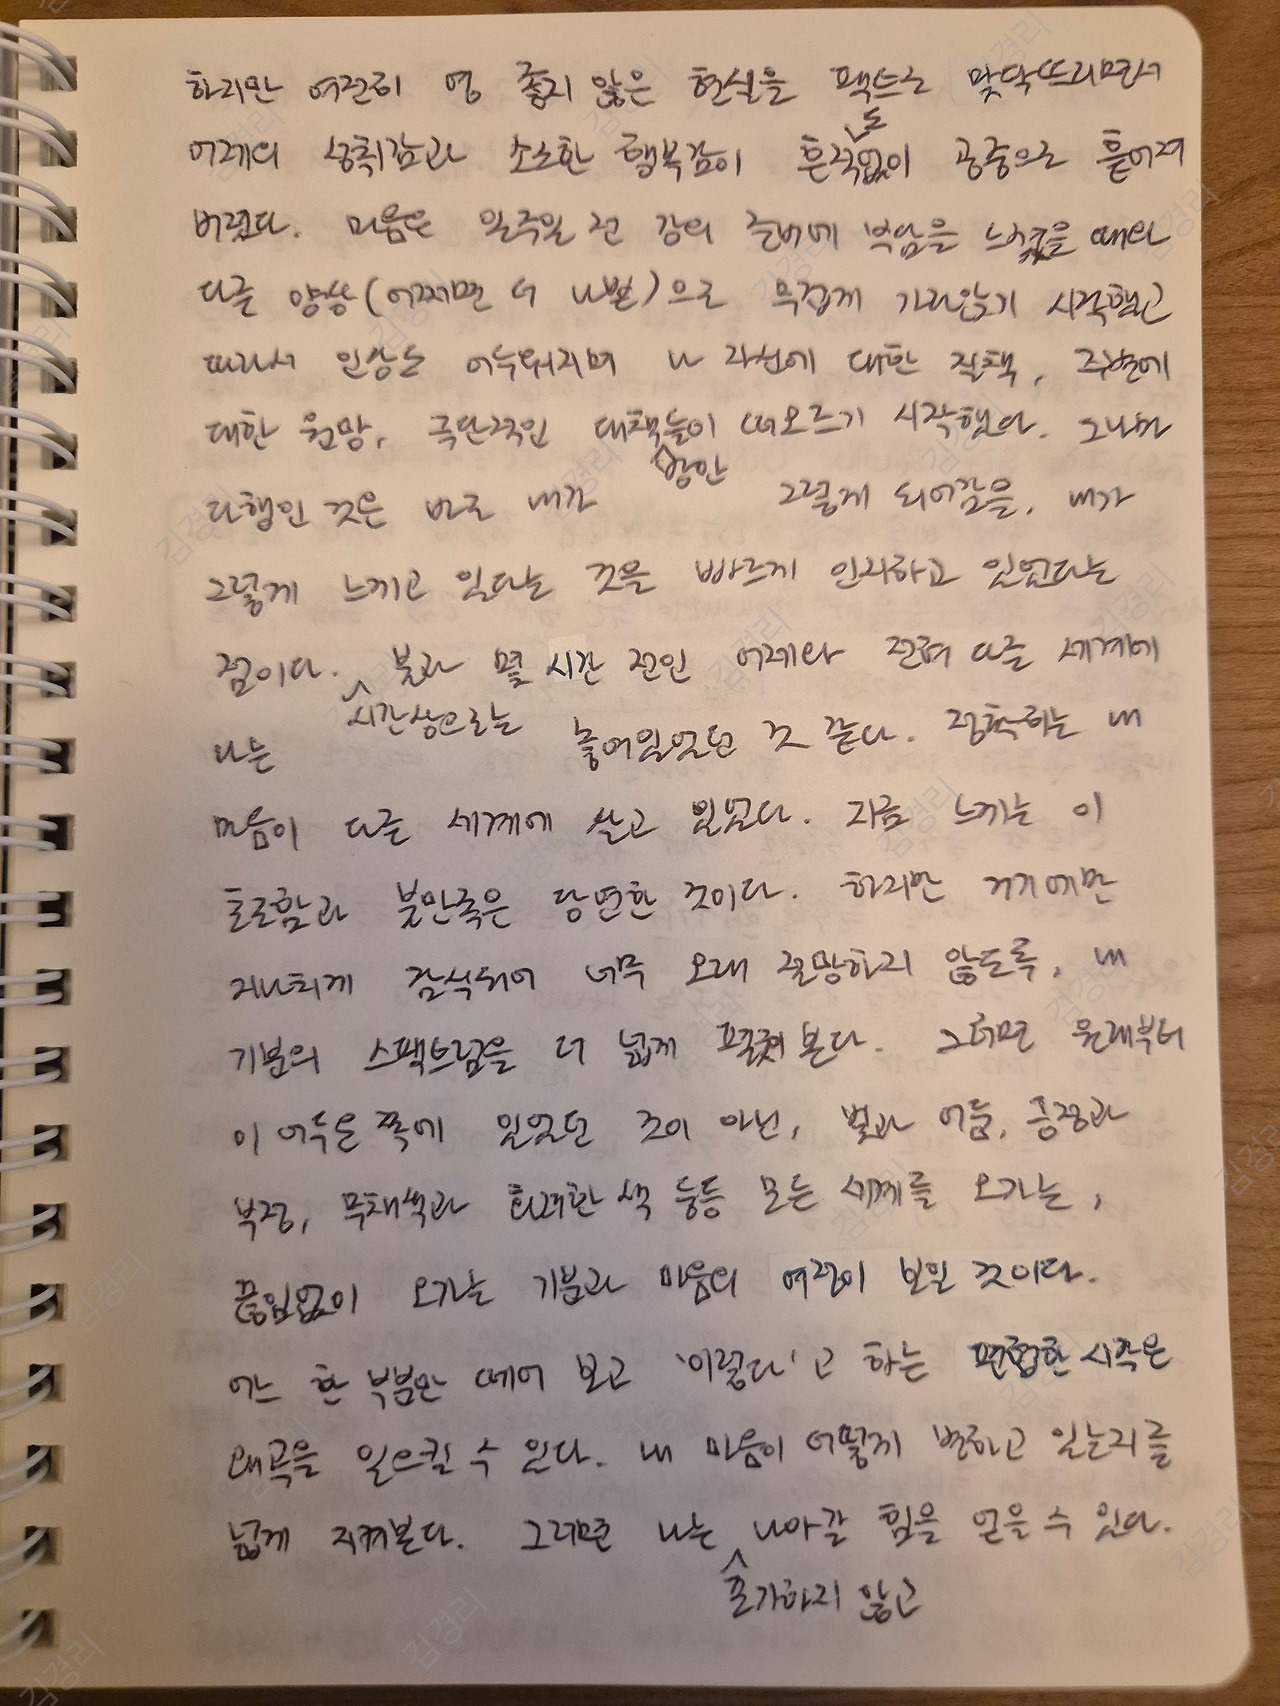 하지만 여전히 영 좋지 않은 현실을 팩트로 맞닥뜨리면서
어제의 성취감과 소소한 행복감이 흔적도없이 공중으로 흩어져
버렸다. 마음은 일주일 전 강의 준비에 부담을 느꼈을 때와
다른 양상(어쩌면 더 나쁜)으로 무겁게 가라앉기 시작했고
따라서 인상은 어두워지며 나 자신에 대한 질책, 주변에
대한 원망, 극단적인 대책방안들이 떠오르기 시작했다. 그나마
다행인 것은 바로 내가 그렇게 되어감을, 내가
그렇게 느끼고 있다는 것을 빠르게 인지하고 있었다는
점이다. 시간상으로는 불과 몇 시간 전인 어제와 전혀 다른 세계에
나는 놓여있었던 것 같다. 정확히는 내
마음이 다른 세계에 살고 있었다. 지금 느끼는 이
초조함과 불만족은 당연한 것이다. 하지만 거기에만
지나치게 잠식되어 너무 오래 절망하지 않도록, 내
기분의 스펙트럼을 더 넓게 펼쳐본다. 그러면 원래부터
이 어두운 쪽에 있었던 것이 아닌, 빛과 어둠, 긍정과
부정, 무채색과 화려한 색 등등 모든 세계를 오가는,
끊임없이 오가는 기분과 마음의 여정이 보일 것이다.
어느 한 부분만 떼어 보고 '이렇다'고 하는 편협한 시각은
왜곡을 일으킬 수 있다. 내 마음이 어떻게 변하고 있는지를
넓게 지켜본다. 그러면 나는 포기하지 않고 나아갈 힘을 얻을 수 있다.
김경리